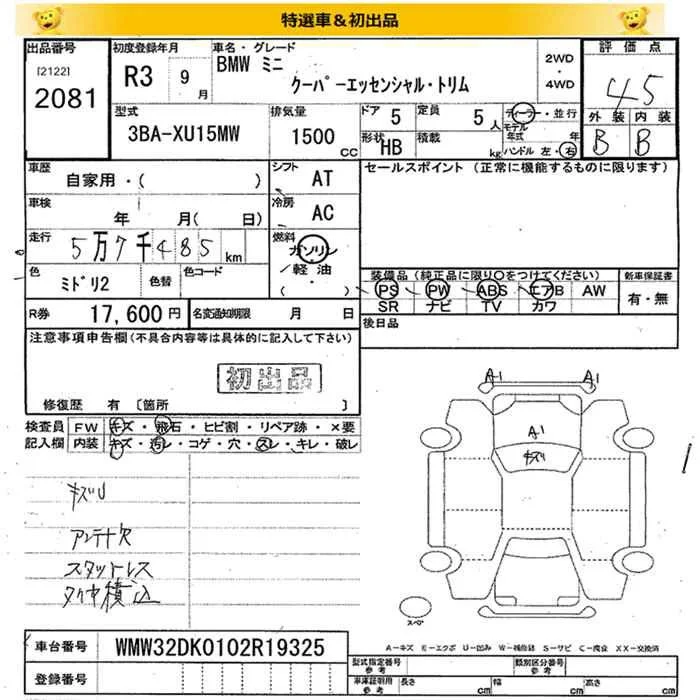 特選車&初出品
出品番号
[2122]
2081
初度登録年月
R3 9月
車名・グレード
BMW ミニ
クーパーエッセンシャル・トリム
2WD
・
4WD
評価点
4.5
型式
3BA-XU15MW
排気量
1500
CC
ドア
5
定員
5人
形状
HB
積載
kg
ディーラー・並行
モデル年式 年
ハンドル 左・右
外装 内装
B B
車歴
自家用・( )
シフト
AT
車検
年 月( 日)
冷房
AC
走行
5万7千485km
燃料
ガソリン
/軽油
・( )
色
ミドリ2
色替
色コード
セールスポイント (正常に機能するものに限ります)
装備品(純正品に限り○をつけてください)
PS PW ABS エアB AW
SR ナビ TV カワ
新車保証書
有・無
R券 17,600円
名変通知期限 月 日
後日品
注意事項申告欄(不具合内容等は具体的に記入して下さい)
初出品
修復歴 有 〔箇所 〕
検査員
記入欄
FW キズ・飛石・ヒビ割・リペア跡・×要
内装 キズ・汚レ・コゲ・穴・スレ・キレ・破レ
キズU
アンテナ欠
スタットレス
タイヤ積込
A1 A1
A1
キズU
スペア
車台番号 WMW32DK0102R19325
登録番号
A-キズ E-エクボ U-凹み W-補修跡 S-サビ C-腐食 XX-交換済
型式指定番号
参考
類別区分番号
参考
車庫証明用
参考
長さ cm 幅 cm 高さ cm